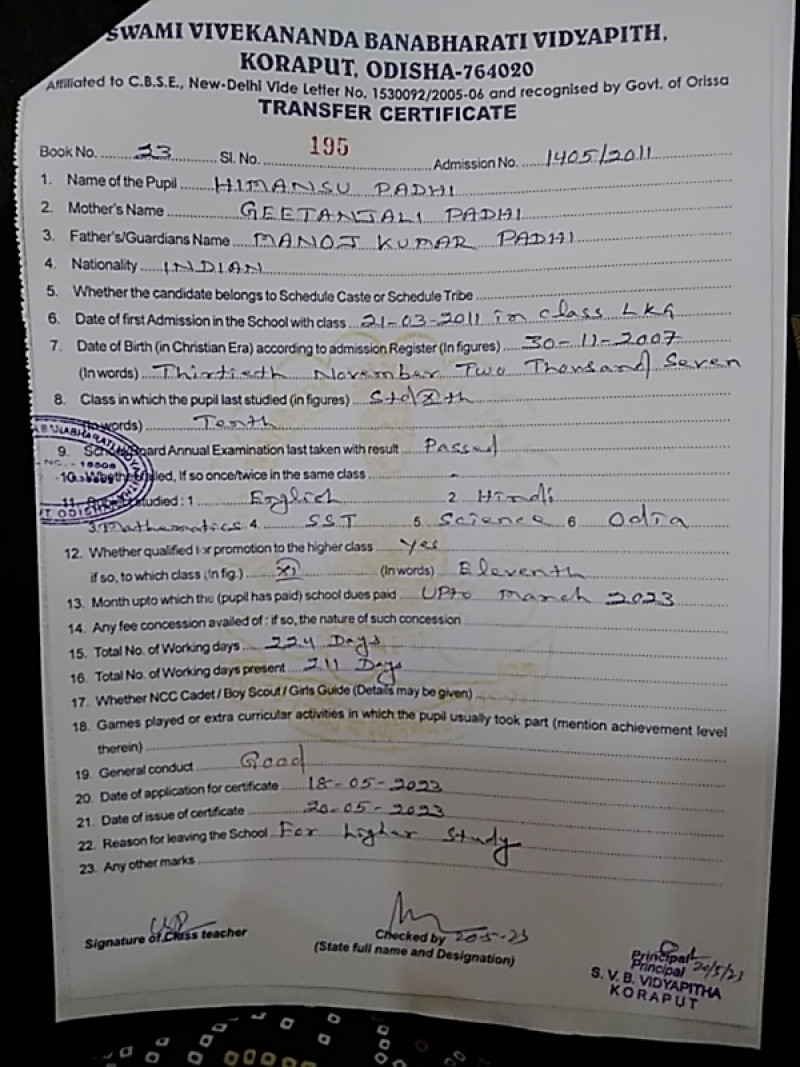 SWAMI VIVEKANANDA BANABHARATI VIDYAPITH,
KORAPUT, ODISHA-764020
Affiliated to C.B.S.E., New-Delhi Vide Letter No. 1530092/2005-06 and recognised by Govt. of Orissa
TRANSFER CERTIFICATE
Book No. 23 Sl. No. 195 Admission No. 1405/2011
1. Name of the Pupil HIMANSU PADHI
2. Mother's Name GEETANJALI PADHI
3. Father's/Guardians Name MANOJ KUMAR PADHI
4. Nationality INDIAN
5. Whether the candidate belongs to Schedule Caste or Schedule Tribe
6. Date of first Admission in the School with class 21-03-2011 in class LKG
7. Date of Birth (in Christian Era) according to admission Register (In figures) 30-11-2007
(In words) Thirtieth November Two Thousand Seven
8. Class in which the pupil last studied (in figures) Std X th
words) Tenth
9. Board Annual Examination last taken with result Passed
10. If so once/twice in the same class -
11. studied : 1 English 2. Hindi
3. Mathematics 4. SST 5. Science 6 Odia
12. Whether qualified for promotion to the higher class Yes
if so, to which class (In fig.) XI (In words) Eleventh
13. Month upto which the (pupil has paid) school dues paid UPto March 2023
14. Any fee concession availed of : if so, the nature of such concession
15. Total No. of Working days 224 Days
16. Total No. of Working days present 211 Days
17. Whether NCC Cadet / Boy Scout / Girls Guide (Details may be given)
18. Games played or extra curricular activities in which the pupil usually took part (mention achievement level
therein)
19. General conduct Good
20. Date of application for certificate 18-05-2023
21. Date of issue of certificate 20-05-2023
22. Reason for leaving the School For higher study
23. Any other marks
Signature of Class teacher
Checked by 20-5-23
(State full name and Designation)
Principal
Principal 20/5/23
S. V. B. VIDYAPITHA
KORAPUT